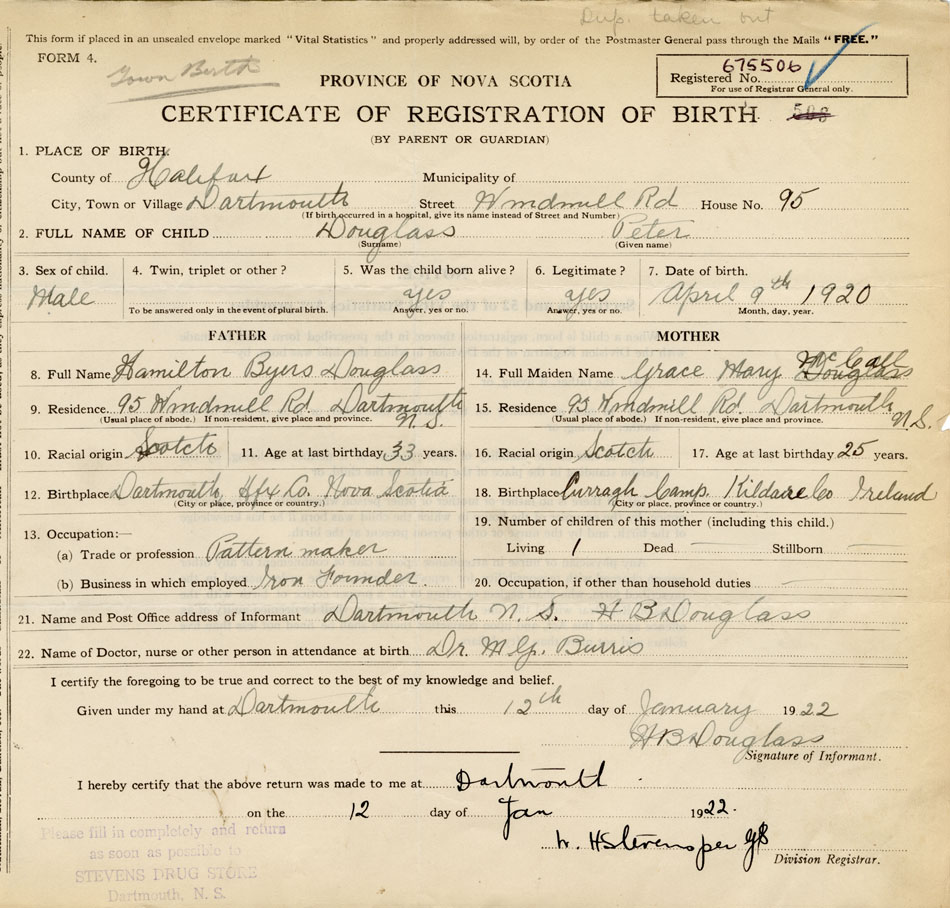 Dup. taken out
This form if placed in an unsealed envelope marked "Vital Statistics" and properly addressed will, by order of the Postmaster General pass through the Mails "FREE."
FORM 4.
Town Birth
675506
Registered No.
For use of Registrar General only.
PROVINCE OF NOVA SCOTIA
CERTIFICATE OF REGISTRATION OF BIRTH
(BY PARENT OR GUARDIAN)
1. PLACE OF BIRTH.
County of Halifax Municipality of
City, Town or Village Dartmouth Street Windmill Rd House No. 95
(If birth occurred in a hospital, give its name instead of Street and Number)
2. FULL NAME OF CHILD Douglass Peter
(Surname) (Given name)
3. Sex of child. 4. Twin, triplet or other? 5. Was the child born alive? 6. Legitimate? 7. Date of birth.
Male yes yes April 9th 1920
To be answered only in the event of plural birth. Answer, yes or no. Answer, yes or no. Month, day, year.
FATHER MOTHER
8. Full Name Hamilton Byers Douglass 14. Full Maiden Name Grace Mary Douglass McCall
9. Residence 95 Windmill Rd. Dartmouth N.S. 15. Residence 95 Windmill Rd. Dartmouth N.S.
(Usual place of abode.) If non-resident, give place and province. (Usual place of abode.) If non-resident, give place and province.
10. Racial origin Scotch 11. Age at last birthday 33 years. 16. Racial origin Scotch 17. Age at last birthday 25 years.
12. Birthplace Dartmouth, Hfx Co. Nova Scotia 18. Birthplace Curragh Camp. Kildare Co Ireland
(City or place, province or country.) (City or place, province or country.)
13. Occupation:— 19. Number of children of this mother (including this child.)
(a) Trade or profession Pattern maker Living 1 Dead — Stillborn —
(b) Business in which employed Iron Founder. 20. Occupation, if other than household duties —
21. Name and Post Office address of Informant Dartmouth N. S. H B Douglass
22. Name of Doctor, nurse or other person in attendance at birth Dr. M G. Burris
I certify the foregoing to be true and correct to the best of my knowledge and belief.
Given under my hand at Dartmouth this 12th day of January 1922
H B Douglass
Signature of Informant.
I hereby certify that the above return was made to me at Dartmouth
on the 12 day of Jan 1922.
W. H Stevens per GB
Division Registrar.
Please fill in completely and return
as soon as possible to
STEVENS DRUG STORE
Dartmouth, N. S.